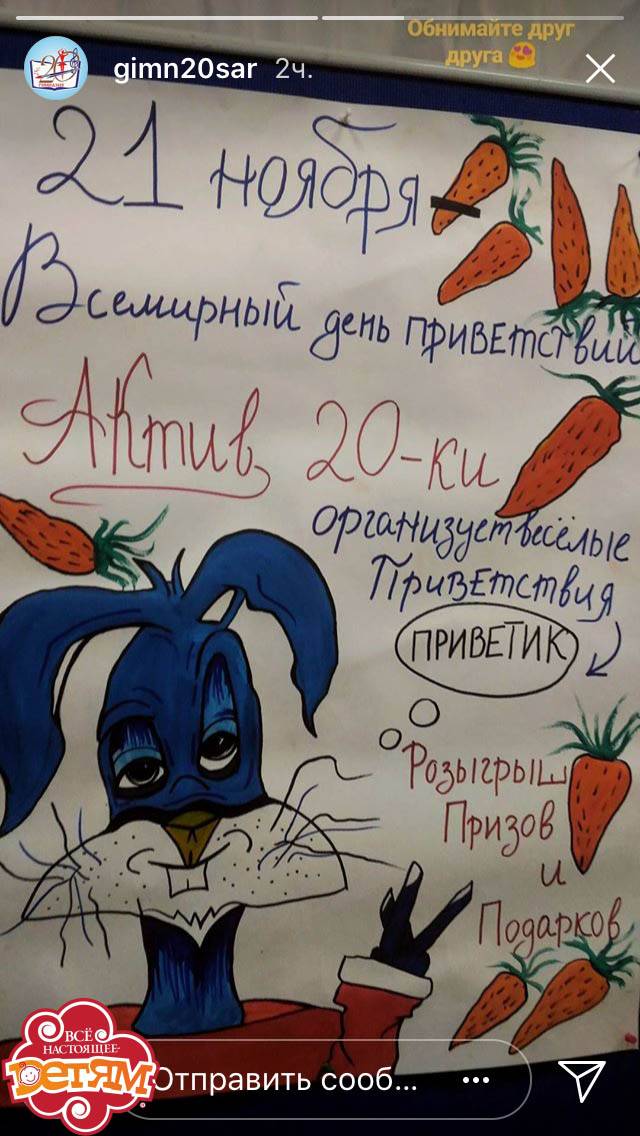 Обнимайте друг
друга 😍
gimn20sar 2ч.
21 ноября-
Всемирный день приветствий
Актив 20-ки
организует весёлые
Приветствия
ПРИВЕТИК
Розыгрыш
Призов
и
Подарков
ВСЁ
НАСТОЯЩЕЕ-
ДЕТЯМ
Отправить сооб...